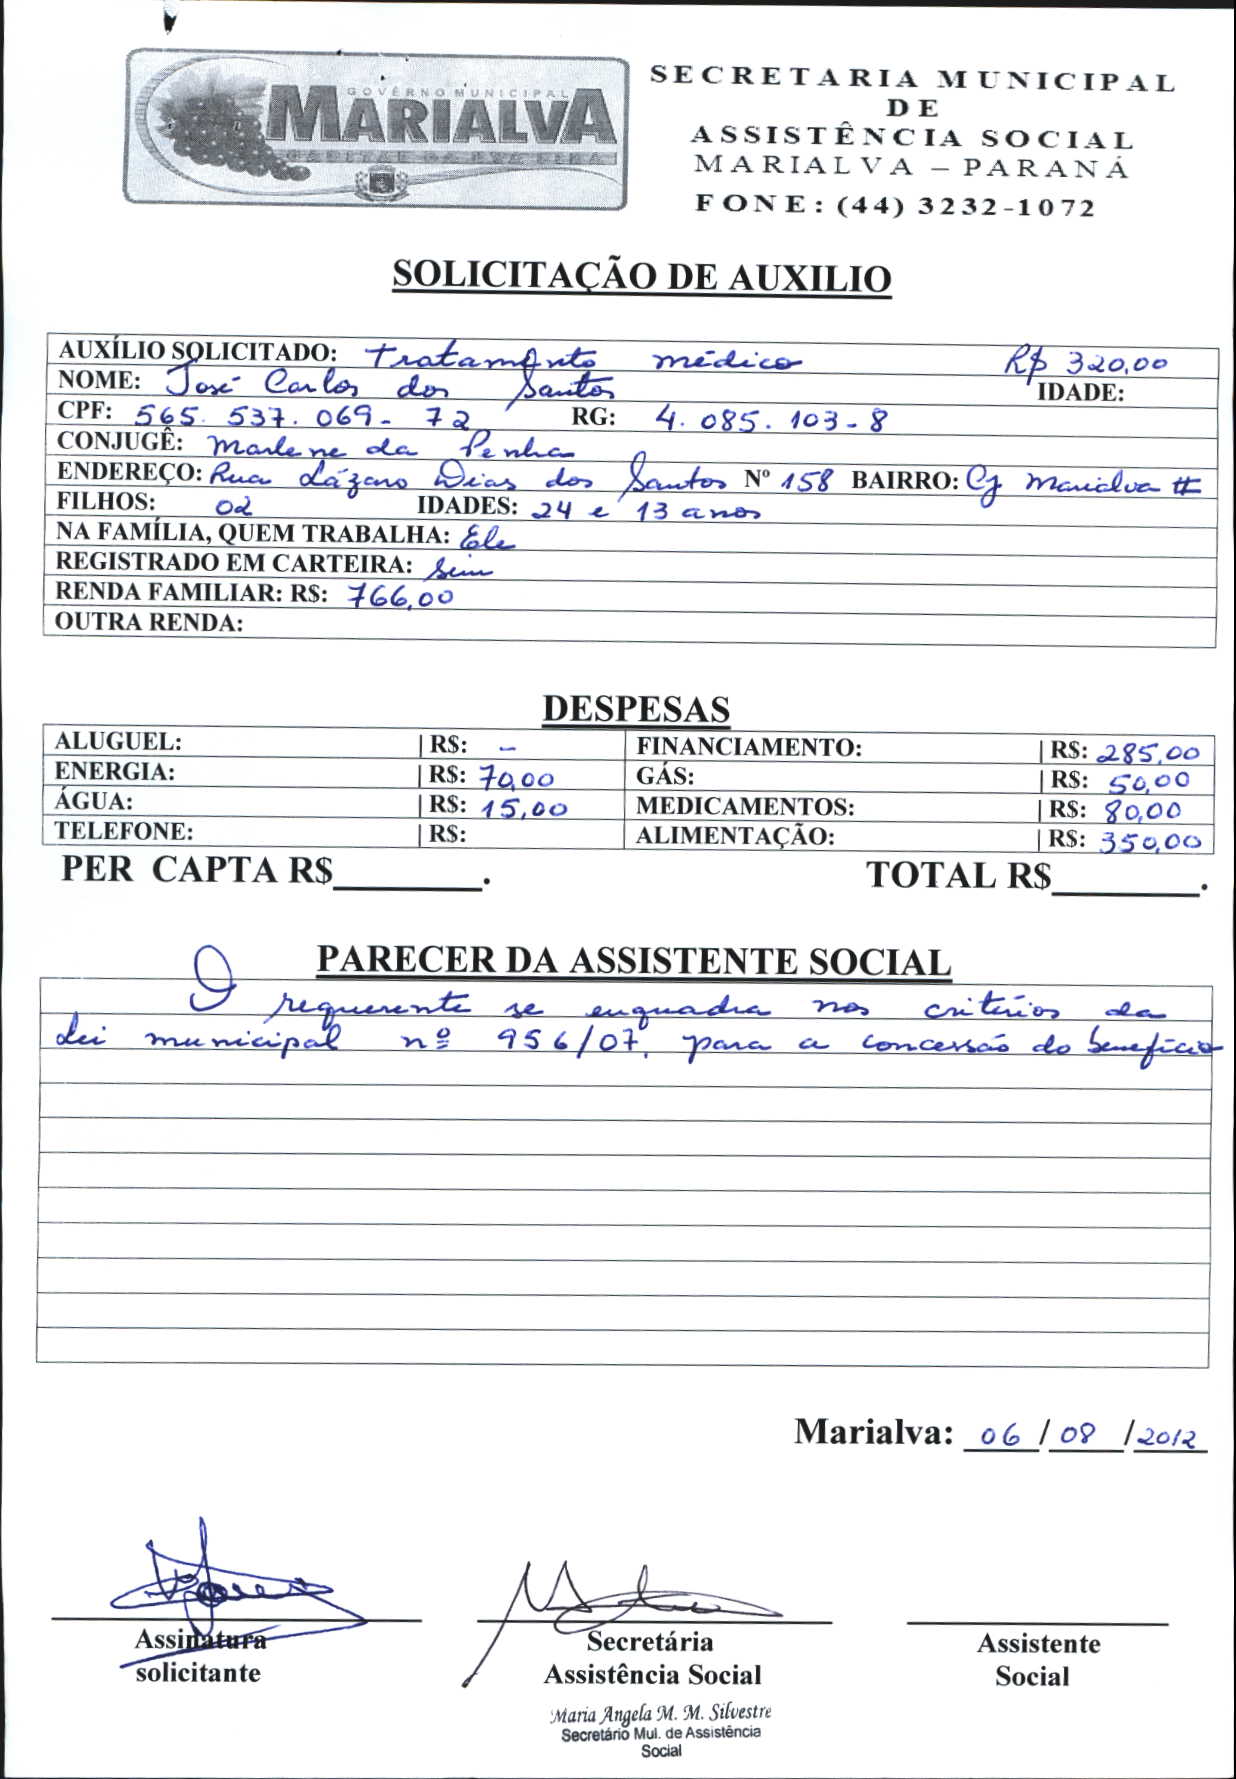 GOVERNO MUNICIPAL
MARIALVA
CAPITAL DA UVA FINA
SECRETARIA MUNICIPAL
DE
ASSISTÊNCIA SOCIAL
MARIALVA – PARANÁ
FONE: (44) 3232-1072
SOLICITAÇÃO DE AUXILIO
AUXÍLIO SOLICITADO: Tratamento médico R$ 320,00
NOME: José Carlos dos Santos IDADE:
CPF: 565.537.069-72 RG: 4.085.103-8
CONJUGÊ: Marlene da Penha
ENDEREÇO: Rua Lázaro Dias dos Santos Nº 158 BAIRRO: Cj Marialva II
FILHOS: 02 IDADES: 24 e 13 anos
NA FAMÍLIA, QUEM TRABALHA: Ele
REGISTRADO EM CARTEIRA: Sim
RENDA FAMILIAR: R$: 766,00
OUTRA RENDA:
DESPESAS
ALUGUEL: | R$: – FINANCIAMENTO: | R$: 285,00
ENERGIA: | R$: 70,00 GÁS: | R$: 50,00
ÁGUA: | R$: 15,00 MEDICAMENTOS: | R$: 80,00
TELEFONE: | R$: ALIMENTAÇÃO: | R$: 350,00
PER CAPTA R$________. TOTAL R$________.
PARECER DA ASSISTENTE SOCIAL
O requerente se enquadra nos critérios da
Lei municipal nº 956/07, para a concessão do benefício
Marialva: 06/08/2012
Assinatura Secretária Assistente
solicitante Assistência Social Social
Maria Angela M. M. Silvestre
Secretário Mul. de Assistência
Social